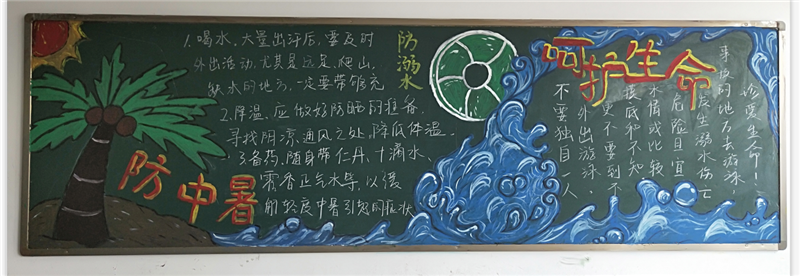 防中暑
1.喝水,大量出汗后,要及时
外出活动,尤其是远足、爬山,
缺水的地方,一定要带够充
2.降温,应做好防晒的准备,
寻找阴凉,通风之处,降低体温,
3.备药,随身带仁丹、十滴水、
藿香正气水等,以缓
解轻度中暑引起的症状
防溺水
呵护生命
珍爱生命,
事故的地方去游泳,
发生溺水伤亡
危险且宜
水情或比较
摸底和不知
更不要到不
外出游泳,
不要独自一人